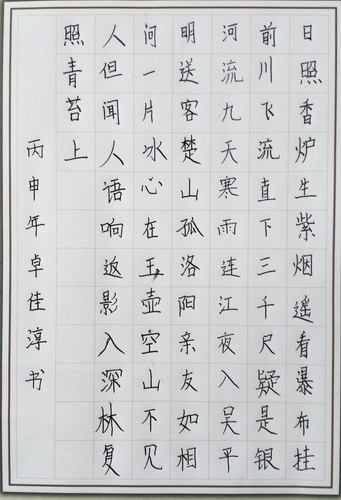 日照香炉生紫烟遥看瀑布挂
前川飞流直下三千尺疑是银
河流九天寒雨连江夜入吴平
明送客楚山孤洛阳亲友如相
问一片冰心在玉壶空山不见
人但闻人语响返影入深林复
照青苔上
丙申年卓佳淳书